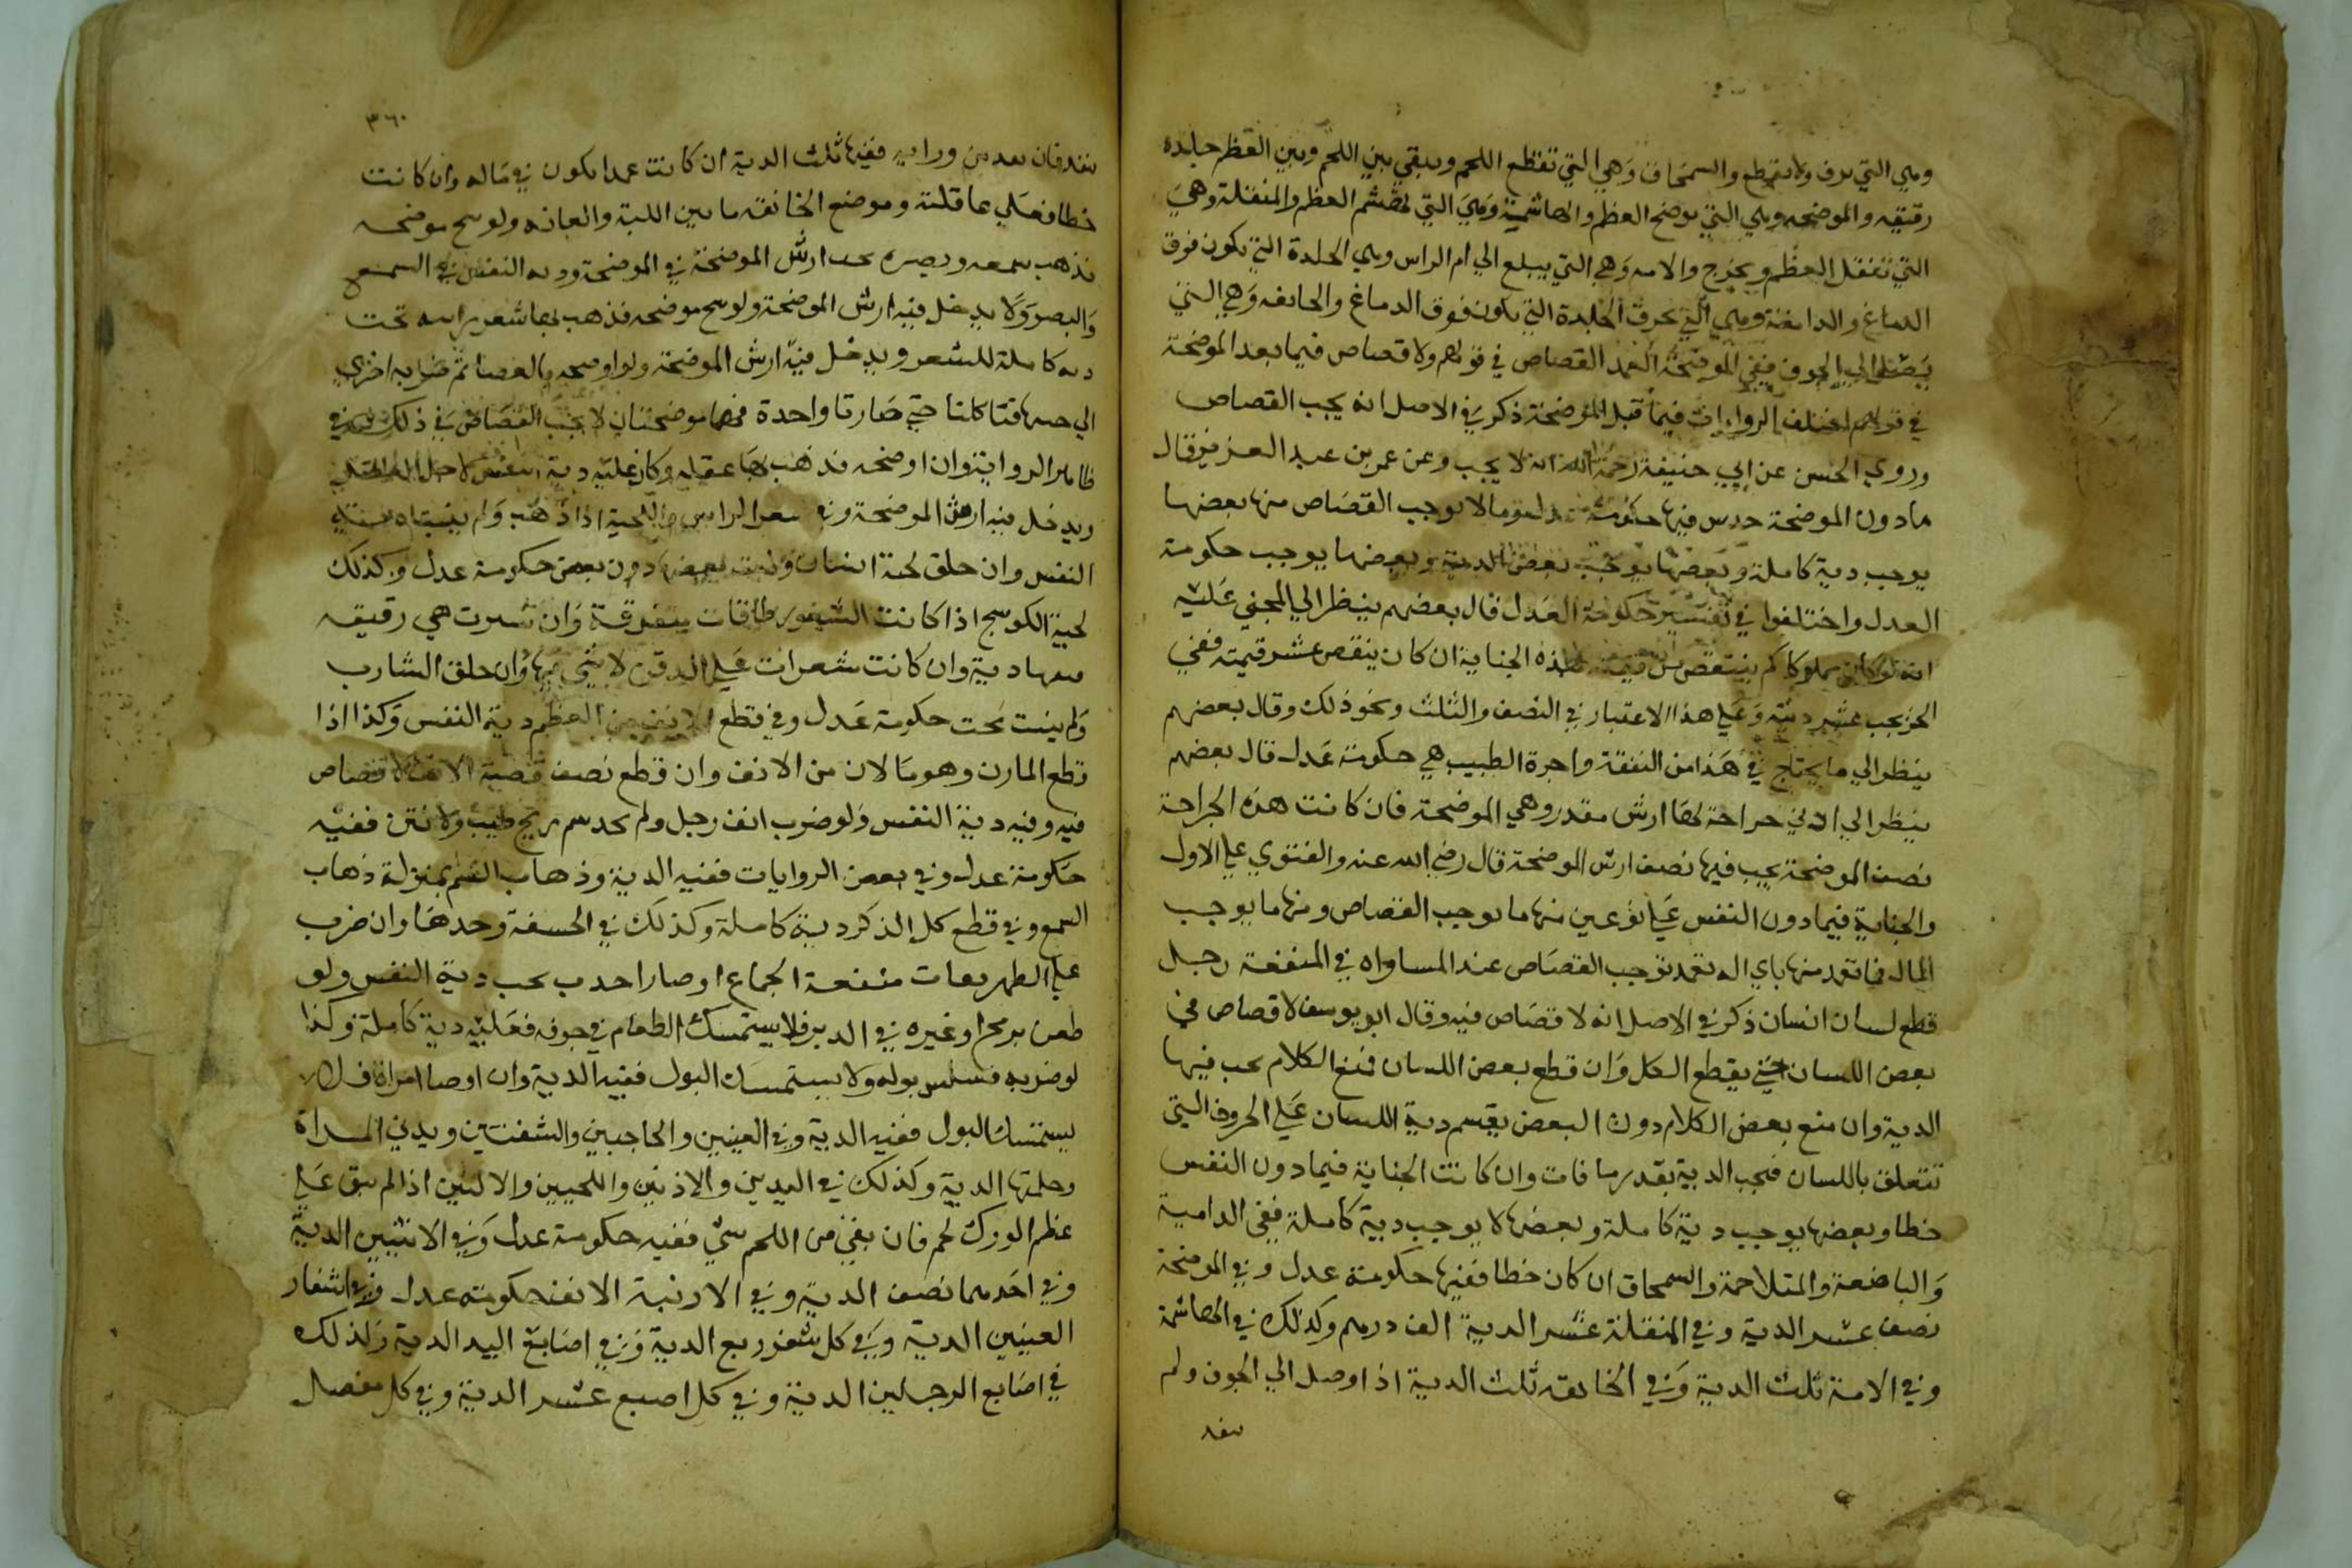 وهي التي تعرف ولا تقطع والسمحاق وهي التي تقطع اللحم ويبقي بين اللحم وبين العظم جلدة
رقيقه والموضحه وهي التي توضح العظم والهاشمة وهي التي تهشم العظم والمنقلة وهي
التي تنقل العظم ويخرج والامه وهي التي يبلع الي ام الراس وهي الجلدة التي يكون فوق
الدماغ والدامغة وهي التي تخرق الجلدة التي يكون فوق الدماغ والجائفه وهي التي
يصل الي الجوف ففي الموضحة العمد القصاص في قولهم ولا قصاص فيما بعد الموضحة
في قولهم اختلف الروايات فيما قبل الموضحة ذكر في الاصل انه يجب القصاص
وروي الحسن عن ابي حنيفة رحمة الله انه لا يجب وعن عمر بن عبد العزيز قال
ما دون الموضحة خدش فيها حكومة عدل وما لا يوجب القصاص منها بعضها
يوجب دية كاملة وبعضها يوجب بعض الدية وبعضها يوجب حكومة
العدل واختلفوا في تفسير حكومة العدل قال بعضهم ينظر الي المجني عليه
انه لو كان مملوكا كم ينتقص من قيمته هذه الجناية ان كان ينقص عشر قيمته ففي
الحر يجب عشر ديته وعلي هذا الاعتبار في النصف والثلث ونحو ذلك وقال بعضهم
ينظر الي ما يحتاج في هذا من النفقة واجرة الطبيب هي حكومة عدل قال بعضهم
ينظر الي ادني جراحة لها ارش مقدر وهي الموضحة فان كانت هذه الجراحة
نصف الموضحة يجب فيها نصف ارش الموضحة قال رضي الله عنه والفتوي علي الاول
والجناية فيما دون النفس علي نوعين منها ما يوجب القصاص ومنها ما يوجب
المال فما تعمد منها باي اله تعمد توجب القصاص عند المساواه في المنفعة رجل
قطع لسان انسان ذكر في الاصل انه لا قصاص فيه وقال ابو يوسف لا قصاص في
بعض اللسان حتي يقطع الكل وان قطع بعض اللسان فمنع الكلام يجب فيها
الدية وان منع بعض الكلام دون البعض يقسم دية اللسان علي الحروف التي
تتعلق باللسان فيجب الدية بقدر ما فات وان كانت الجناية فيما دون النفس
خطا وبعضها يوجب دية كاملة وبعضها لا يوجب دية كاملة ففي الدامية
والباضعة والمتلاحمة والسمحاق ان كان خطا ففيها حكومة عدل وفي الموضحة
نصف عشر الدية وفي المنقلة عشر الدية الف درهم وكذلك في الهاشمة
وفي الامة ثلث الدية وفي الجائفه ثلث الدية اذا وصل الي الجوف ولم
ينفد
٣٦٠
ينفد فان نفد من ورايه ففيها ثلث الدية ان كانت عمدا يكون في ماله وان كانت
خطا فعلي عاقلته وموضع الجائفه ما بين اللبة والعانه ولو شج موضحه
فذهب سمعه وبصره يجب ارش الموضحة في الموضحة ودية النفس في السمع
والبصر ولا يدخل فيه ارش الموضحة ولو شج موضحه فذهب بها شعر راسه تحت
دية كاملة للشعر ويدخل فيه ارش الموضحة ولو اوضحه بالعصا ثم ضرابه اخري
الي جنبها فتاكلتا حتي صارتا واحدة فهما موضحتان لا يجب القصاص في ذلك في
ظاهر الرواية وان اوضحه فذهب بها عقله وكان عليه دية النفس لاجل العقل
ويدخل فيه ارش الموضحة وفي شعر الراس واللحية اذا ذهب ولم ينبت دية
النفس وان حلق لحية انسان ونبت بعضها دون بعض حكومة عدل وكذلك
لحية الكوسج اذا كانت الشعور طاقات متفرقة وان سرت هي رقيقه
ففيها دية وان كانت شعرات علي الذقن لا شي فيها وان حلق الشارب
ولم ينبت يجب حكومة عدل وفي قطع الانف من العظم دية النفس وكذا اذا
قطع المارن وهو ما لان من الانف وان قطع نصف قصبة الانف لا قصاص
فيه وفيه دية النفس ولو ضرب انف رجل ولم يجد شم ريح طيب ولا نتن ففيه
حكومة عدل وفي بعض الروايات ففيه الدية وذهاب الشم بمنزلة ذهاب
السمع وفي قطع كل الذكر دية كاملة وكذلك في الحشفة وحدها وان ضرب
علي الظهر ففات منفعة الجماع او صار احدب يجب دية النفس ولو
طعن برمح او غيره في الدبر فلا يستمسك الطعام في جوفه فعليه دية كاملة وكذا
لو ضربه فسلس بوله ولا يستمسك البول ففيه الدية وان اوصا امراة فلا
يستمسك البول ففيه الدية وفي العينين والحاجبين والشفتين وثديي المراة
وحلمتها الدية وكذلك في اليدين والاذنين واللحيين والاليتين اذا لم يبق علي
عظم الورك لحم فان بقي من اللحم شي ففيه حكومة عدل وفي الانثيين الدية
وفي احدهما نصف الدية وفي الارنبة الانف حكومة عدل وفي اشفار
العينين الدية وفي كل شفر ربع الدية وفي اصابع اليد الدية وكذلك
في اصابع الرجلين الدية وفي كل اصبع عشر الدية وفي كل مفصل